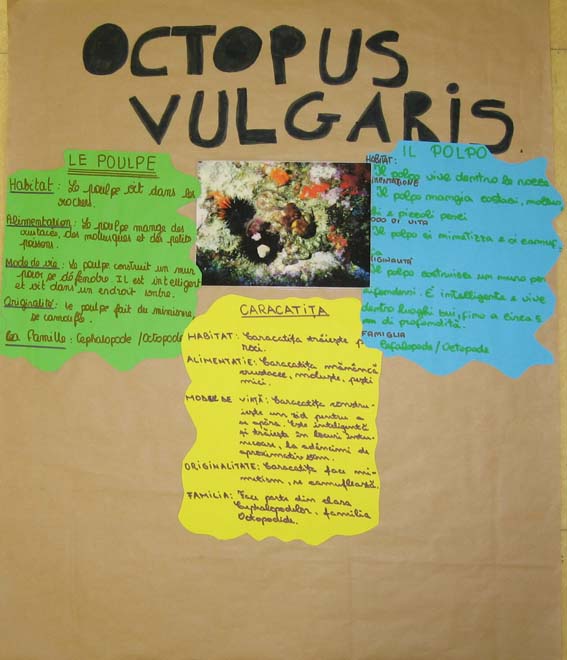 OCTOPUS
VULGARIS
LE POULPE
Habitat : Le poulpe vit dans les
rochers.
Alimentation : Le poulpe mange des
crustacés, des mollusques et des petits
poissons.
Mode de vie : Le poulpe construit un mur
pour se défendre. Il est intelligent
et vit dans un endroit sombre.
Originalité : Le poulpe fait du mimisme,
se camoufle.
La Famille : Cephalopode / Octopode
IL POLPO
HABITAT:
Il polpo vive dentro le rocce
Il polpo mangia crostacei, mollus
chi e piccoli pesci
ODO DI VITA
Il polpo si mimetizza e si camuf
IGINALITÀ
Il polpo costruisce un muro per
difendersi. È intelligente e vive
dentro luoghi bui, fino a circa
m di profondità.
FAMIGLIA
Cefalopode / Octopode
CARACATIȚA
HABITAT: Caracatița trăiește
roci.
ALIMENTATIE: Caracatița mănâncă
crustacee, moluște, pești
mici.
MODEL DE VIAȚĂ: Caracatița constru-
iește un zid pentru a
se apăra. Este inteligentă
și trăiește în locuri întu-
necoase, la adâncimi de
aproximativ
ORIGINALITATE: Caracatița face mi-
metism, se camuflează.
FAMILIA: Face parte din clasa
Cephalopodelor, familia
Octopodide.